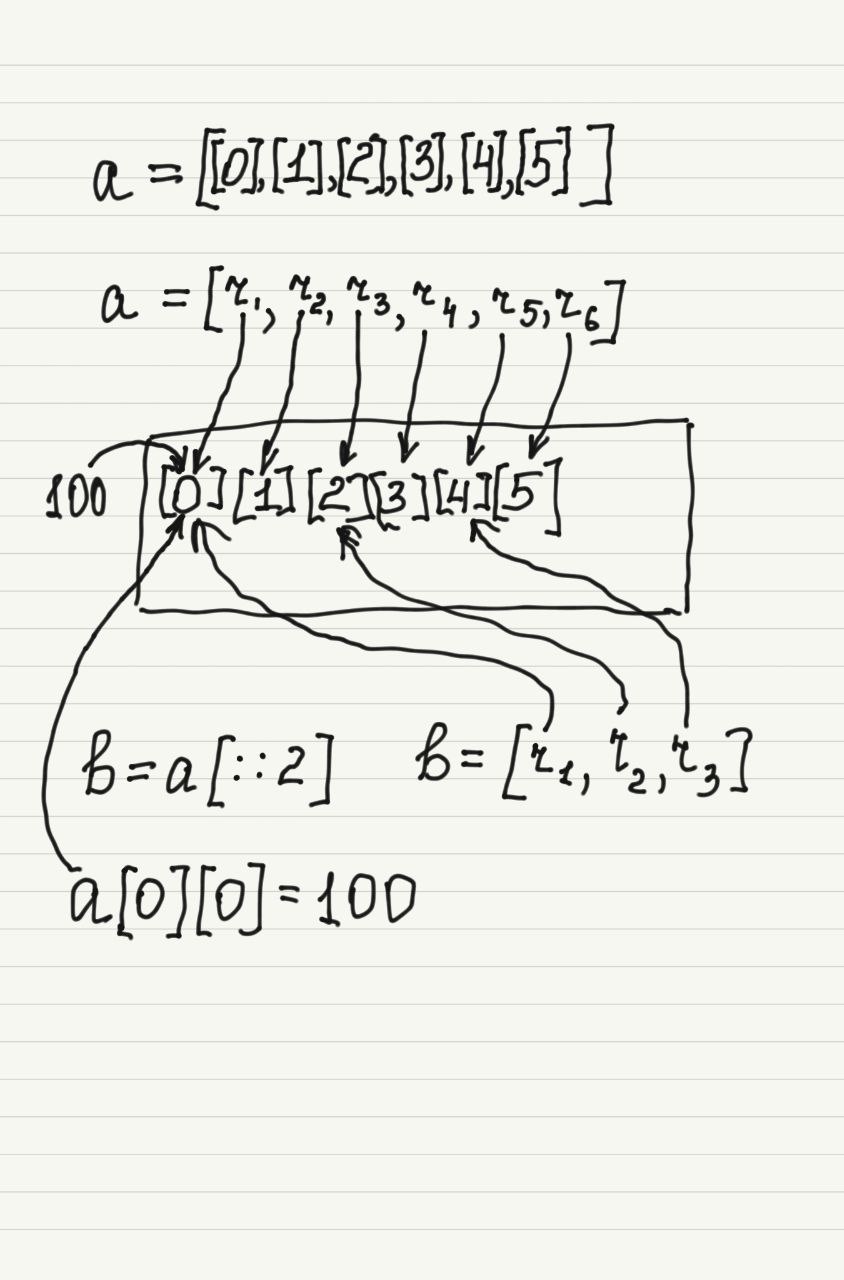 a = [[0],[1],[2],[3],[4],[5]]
a = [r₁, r₂, r₃, r₄, r₅, r₆]
100 [0] [1] [2] [3] [4] [5]
b = a[::2] b = [r₁, r₂, r₃]
a[0][0] = 100